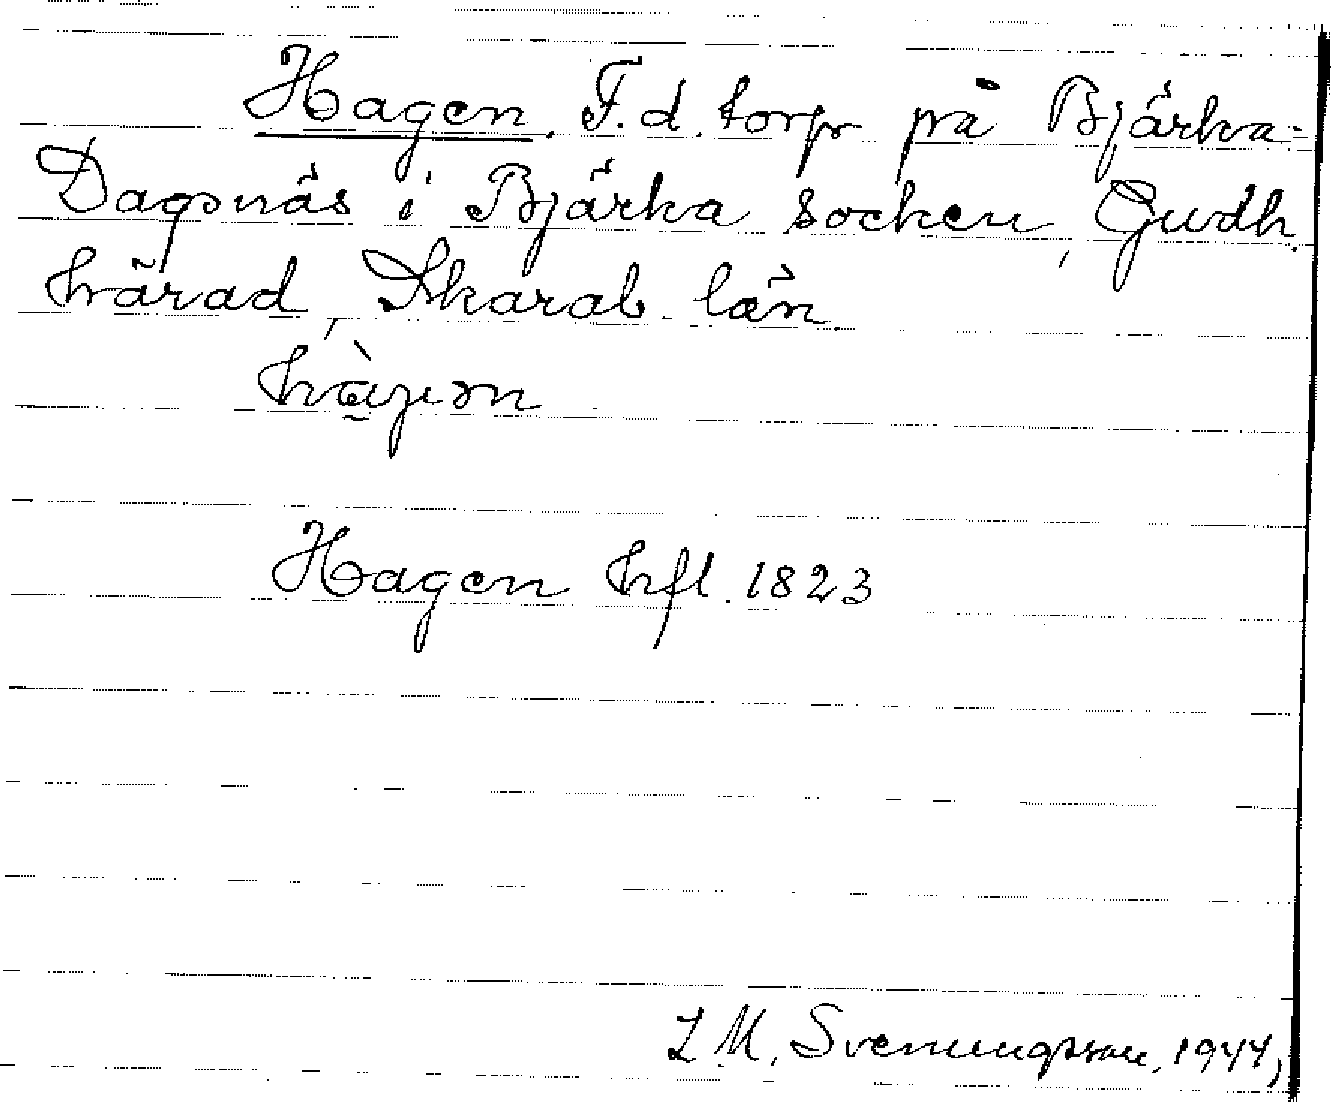 Hagen. F.d. torp på Bjärka-
Dagsnäs i Bjärka socken, Gudh.
härad, Skarab. län
Hagen hfl. 1823
L M. Svenungsson, 1944,